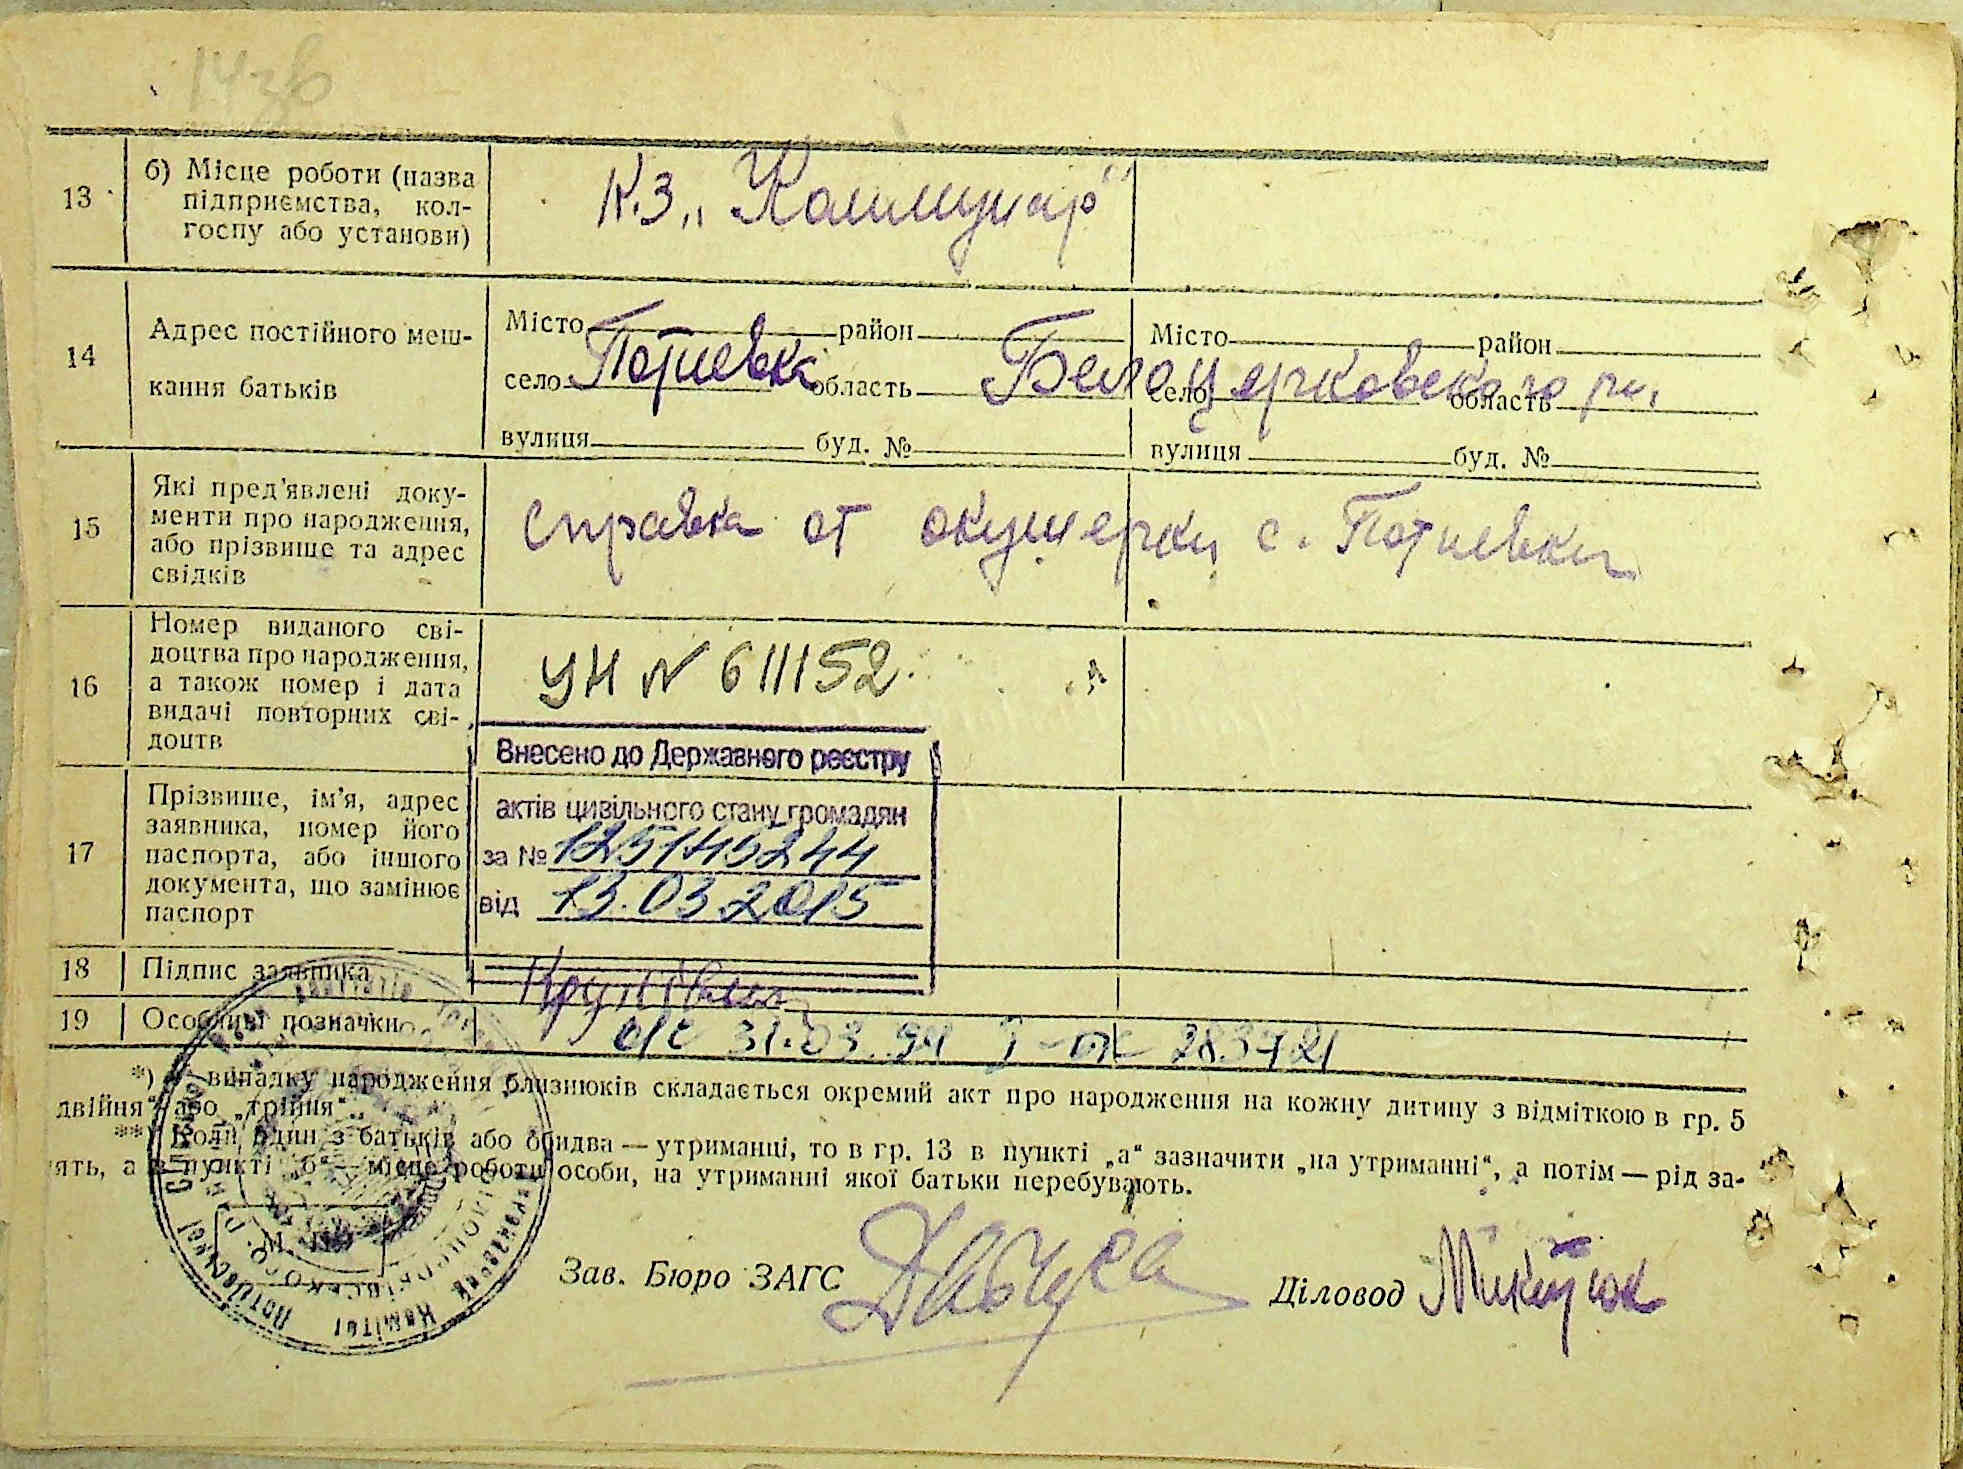 14зв
13 б) Місце роботи (назва підприємства, колгоспу або установи) К.З. „Коммунар"
14 Адрес постійного мешкання батьків
Місто район Місто район
село Потиевка область Белоцерковского рн. село область
вулиця буд. № вулиця буд. №
15 Які пред'явлені документи про народження, або прізвище та адрес свідків
справка от акушерки с. Потиевки
16 Номер виданого свідоцтва про народження, а також номер і дата видачі повторних свідоцтв
УН № 611152.
Внесено до Державного реєстру
актів цивільного стану громадян
за №
від 13.03.2015
17 Прізвище, ім'я, адрес заявника, номер його паспорта, або іншого документа, що замінює паспорт
18 Підпис заявника
19 Особливі позначки
31.03.94 283721
*) У випадку народження близнюків складається окремий акт про народження на кожну дитину з відміткою в гр. 5
двійня" або „трійня".
**) Коли один з батьків або обидва — утриманці, то в гр. 13 в пункті „а" зазначити „на утриманні", а потім — рід за-
ять, а в пункті „б" — місце роботи особи, на утриманні якої батьки перебувають.
М. П.
Зав. Бюро ЗАГС
Діловод